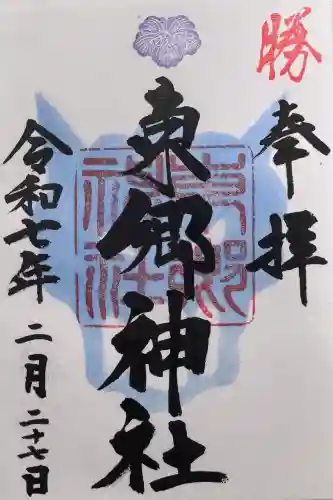 勝
奉拝
東郷神社
東郷神社
令和七年
二月二十七日